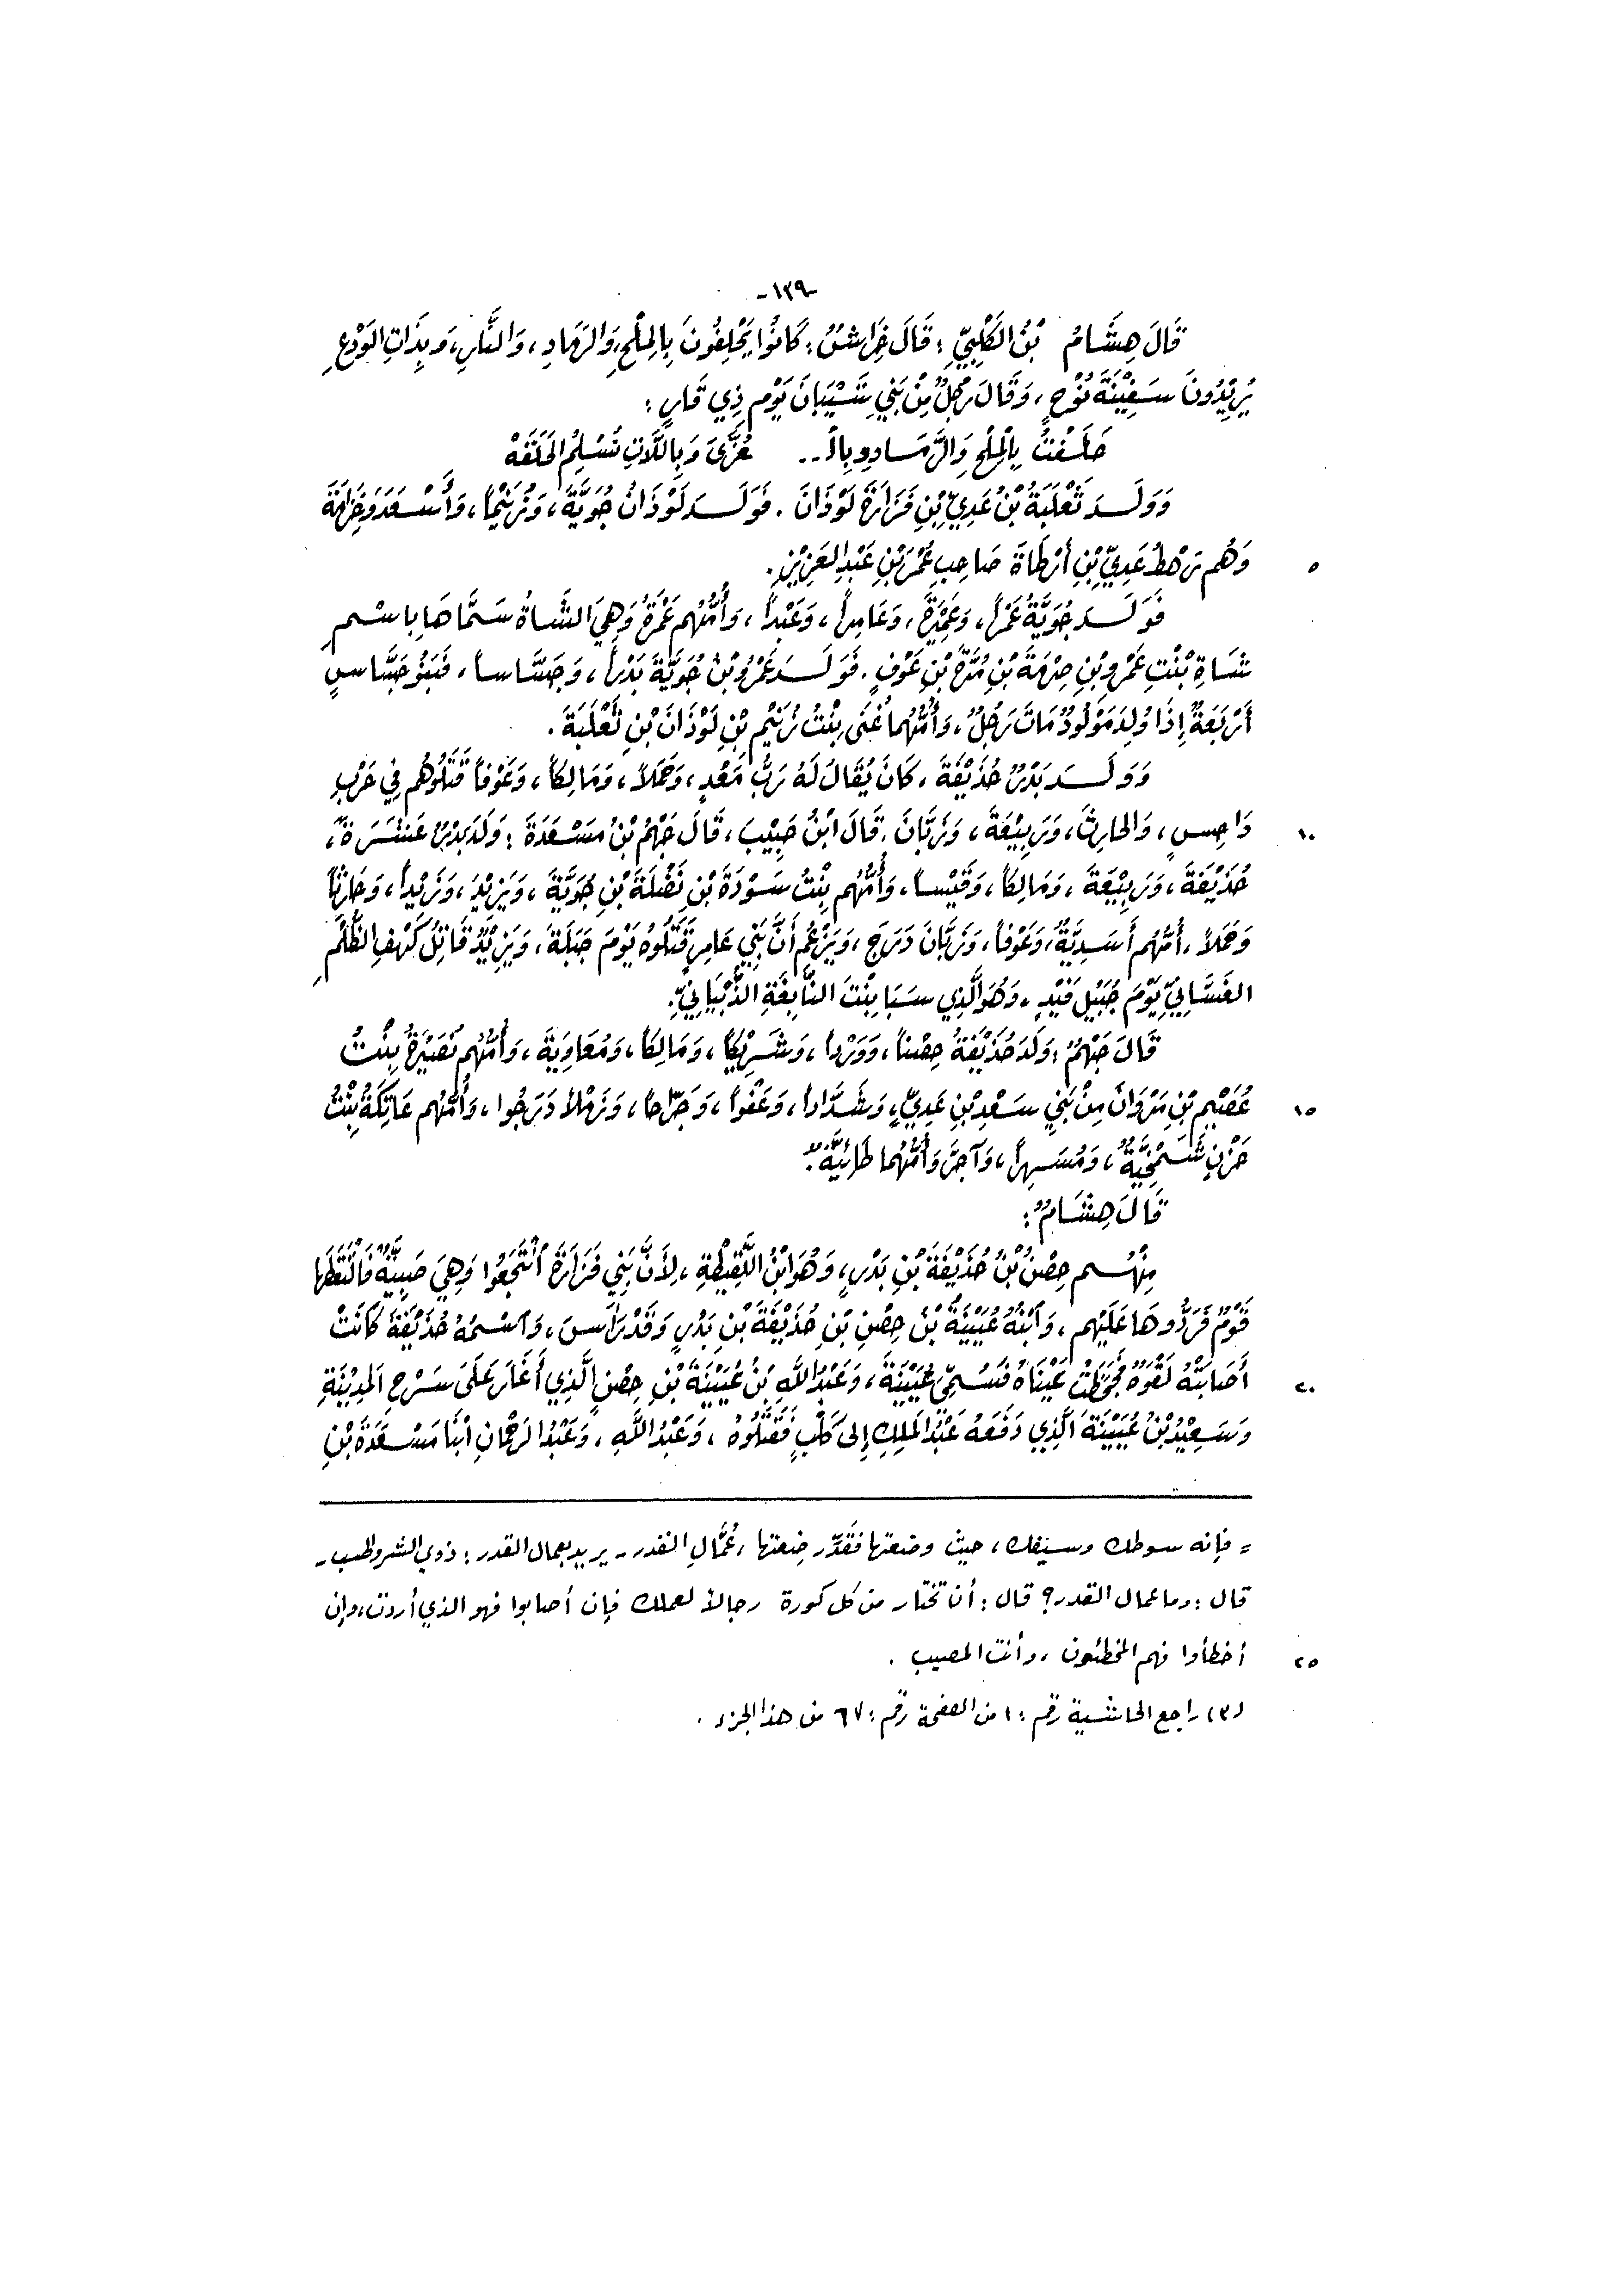 -١٢٩-
قَالَ هِشَامُ بْنُ الكَلْبِيِّ: قَالَ خِرَاشٌ: كَانُوا يَحْلِفُونَ بِالمِلْحِ، وَالرَمَادِ، وَالنَّارِ، وَبِذَاتِ الوَدْعِ
يُرِيْدُونَ سَفِيْنَةَ نُوْحٍ، وَقَالَ رَجُلٌ مِنْ بَنِي شَيْبَانَ يَوْمَ ذِي قَارٍ:
حَلَفْتُ بِالْمِلْحِ وَالرَّمَادِ وبِالْـ.. عُزَّى وَبِاللَّاتِ تُسْلِمُ الحَلَقَهْ
وَوَلَدَ ثَعْلَبَةُ بْنُ عَدِيِّ بْنِ فَزَارَةَ لَوْذَانَ. فَوَلَدَ لَوْذَانُ جُوَيَّةَ، وَزُنَيْماً، وَأَسْعَدَ وَخِزَامَةَ
٥ وَهُم رَهْطُ عَدِيِّ بْنِ أَرْطَاةَ صَاحِبِ عُمَرَ بْنِ عَبْدِ العَزِيْزِ.
فَوَلَدَ جُوَيَّةُ عَمْراً، وَعَامِراً، وَعَبْداً، وَأُمُّهُم عَمْرَةُ وَهِيَ الشَاةُ سَمَّاهَا بِاسْمِ
شَاةِ بْنْتِ عَمْرِو بْنِ صِرْمَةَ بْنِ مُرَّةَ بْنِ عَوْفٍ. فَوَلَدَ عَمْرُو بْنُ جُوَيَّةَ بَدْراً، وَجَسَّاساً، فَبَنُو جَسَّاسٍ
أَرْبَعَةٌ إِذَا وُلِدَ مَوْلُودٌ مَاتَ رَجُلٌ، وَأُمُّهُمَا غُنَى بِنْتُ زُنَيْمِ بْنِ لَوْذَانَ بْنِ ثَعْلَبَةَ.
وَوَلَدَ بَدْرٌ حُذَيْفَةَ، كَانَ يُقَالُ لَهُ رَبُّ مَعْدٍ، وَحَمَلاً، وَمَالِكاً، وَعَوْفاً قَتَلُوهُم فِي حَرْبِ
١٠ دَاحِسٍ، وَالحَارِثَ، وَرَبِيْعَةَ، وَزَبَّانَ. قَالَ ابْنُ حَبِيْبَ، قَالَ جَهْمُ بْنُ مَسْعَدَةَ: وَلَدَ بَدْرٌ عَشَرَةً،
حُذَيْفَةَ، وَرَبِيْعَةَ، وَمَالِكاً، وَقَيْساً، وَأُمُّهُم بِنْتُ سَوْدَةَ بْنِ نَضْلَةَ بْنِ جُوَيَّةَ، وَيَزِيْدَ، وَزَيْداً، وَحَارِثاً
وَحَمَلاً، أُمُّهُم أَسَدِيَّةٌ، وَعَوْفاً، وَزَبَّانَ دَرَجَ، وَيَزْعُمُ أَنَّ بَنِي عَامِرٍ قَتَلُوهُ يَوْمَ جَبَلَةَ، وَيَزِيْدُ قَاتِلُ كَهْفِ الظُّلَمِ
الغَسَّانِيِّ يَوْمَ جُبَيْلِ فَيْدٍ، وَهُوَ الَّذِي سَبَا بِنْتَ النَّابِغَةِ الذُّبْيَانِيِّ.
قَالَ جَهْمٌ: وَلَدَ حُذَيْفَةُ حِصْناً، وَوَرْداً، وَشَرِيْكاً، وَمَالِكاً، وَمُعَاوِيَةَ، وَأُمُّهُم نُضَيْرَةُ بِنْتُ
١٥ عُصَيْمِ بْنِ مَرْوَانَ مِنْ بَنِي سَعْدِ بْنِ عَدِيٍّ، وَشَدَّاداً، وَعَفْواً، وَجَرَّاحاً، وَزَمْلاً دَرَجُوا، وَأُمُّهُم عَاتِكَةُ بِنْتُ
حَزْنٍ شَمْخِيَّةٌ، وَمُسْهِراً، وَآجَرَ وَأُمُّهُمَا طَائِيَّةٌ.
قَالَ هِشَامٌ:
مِنْهُم حِصْنُ بْنُ حُذَيْفَةَ بْنِ بَدْرٍ، وَهُوَ ابْنُ اللَّقِيْطَةِ، لِأَنَّ بَنِي فَزَارَةَ انْتَجَعُوا وَهِيَ صَبِيَّةٌ فَالْتَقَطَهَا
قَوْمٌ فَرَدُّوهَا عَلَيْهِم، وَابْنُهُ عُيَيْنَةُ بْنُ حِصْنِ بْنِ حُذَيْفَةَ بْنِ بَدْرٍ وَقَدْ رَأَسَ، وَاسْمُهُ حُذَيْفَةُ كَانَتْ
٢٠ أَصَابَتْهُ لَقْوَةٌ فَجَحَظَتْ عَيْنَاهُ فَسُمِّيَ عُيَيْنَةَ، وَعَبْدُ اللَّهِ بْنُ عُيَيْنَةَ بْنِ حِصْنٍ الَّذِي أَغَارَ عَلَى سَرْحِ المَدِيْنَةِ
وَسَعِيْدُ بْنُ عُيَيْنَةَ الَّذِي دَفَعَهُ عَبْدُ المَلِكِ إلى كَلْبٍ فَقَتَلُوهُ، وَعَبْدُ اللَّهِ، وَعَبْدُ الرَحْمَانِ ابْنَا مَسْعَدَةَ بْنِ
= فإنه سوطك وسيفك، حيث وضعتها فَقَدَّر ضِعتها، عُمَّالِ القدر - يريد بعمال القدر: ذوي الشروط -
قال: وما عمال القدر؟ قال: أن تختار من كل كورة رجالاً لعملك فإن أصابوا فهو الذي أردت، وإن
٢٥ أخطأوا فهم المخطئون، وأنت المصيب.
(٣) راجع الحاشية رقم: ١ من الصفحة رقم: ٦٧ من هذا الجزء.